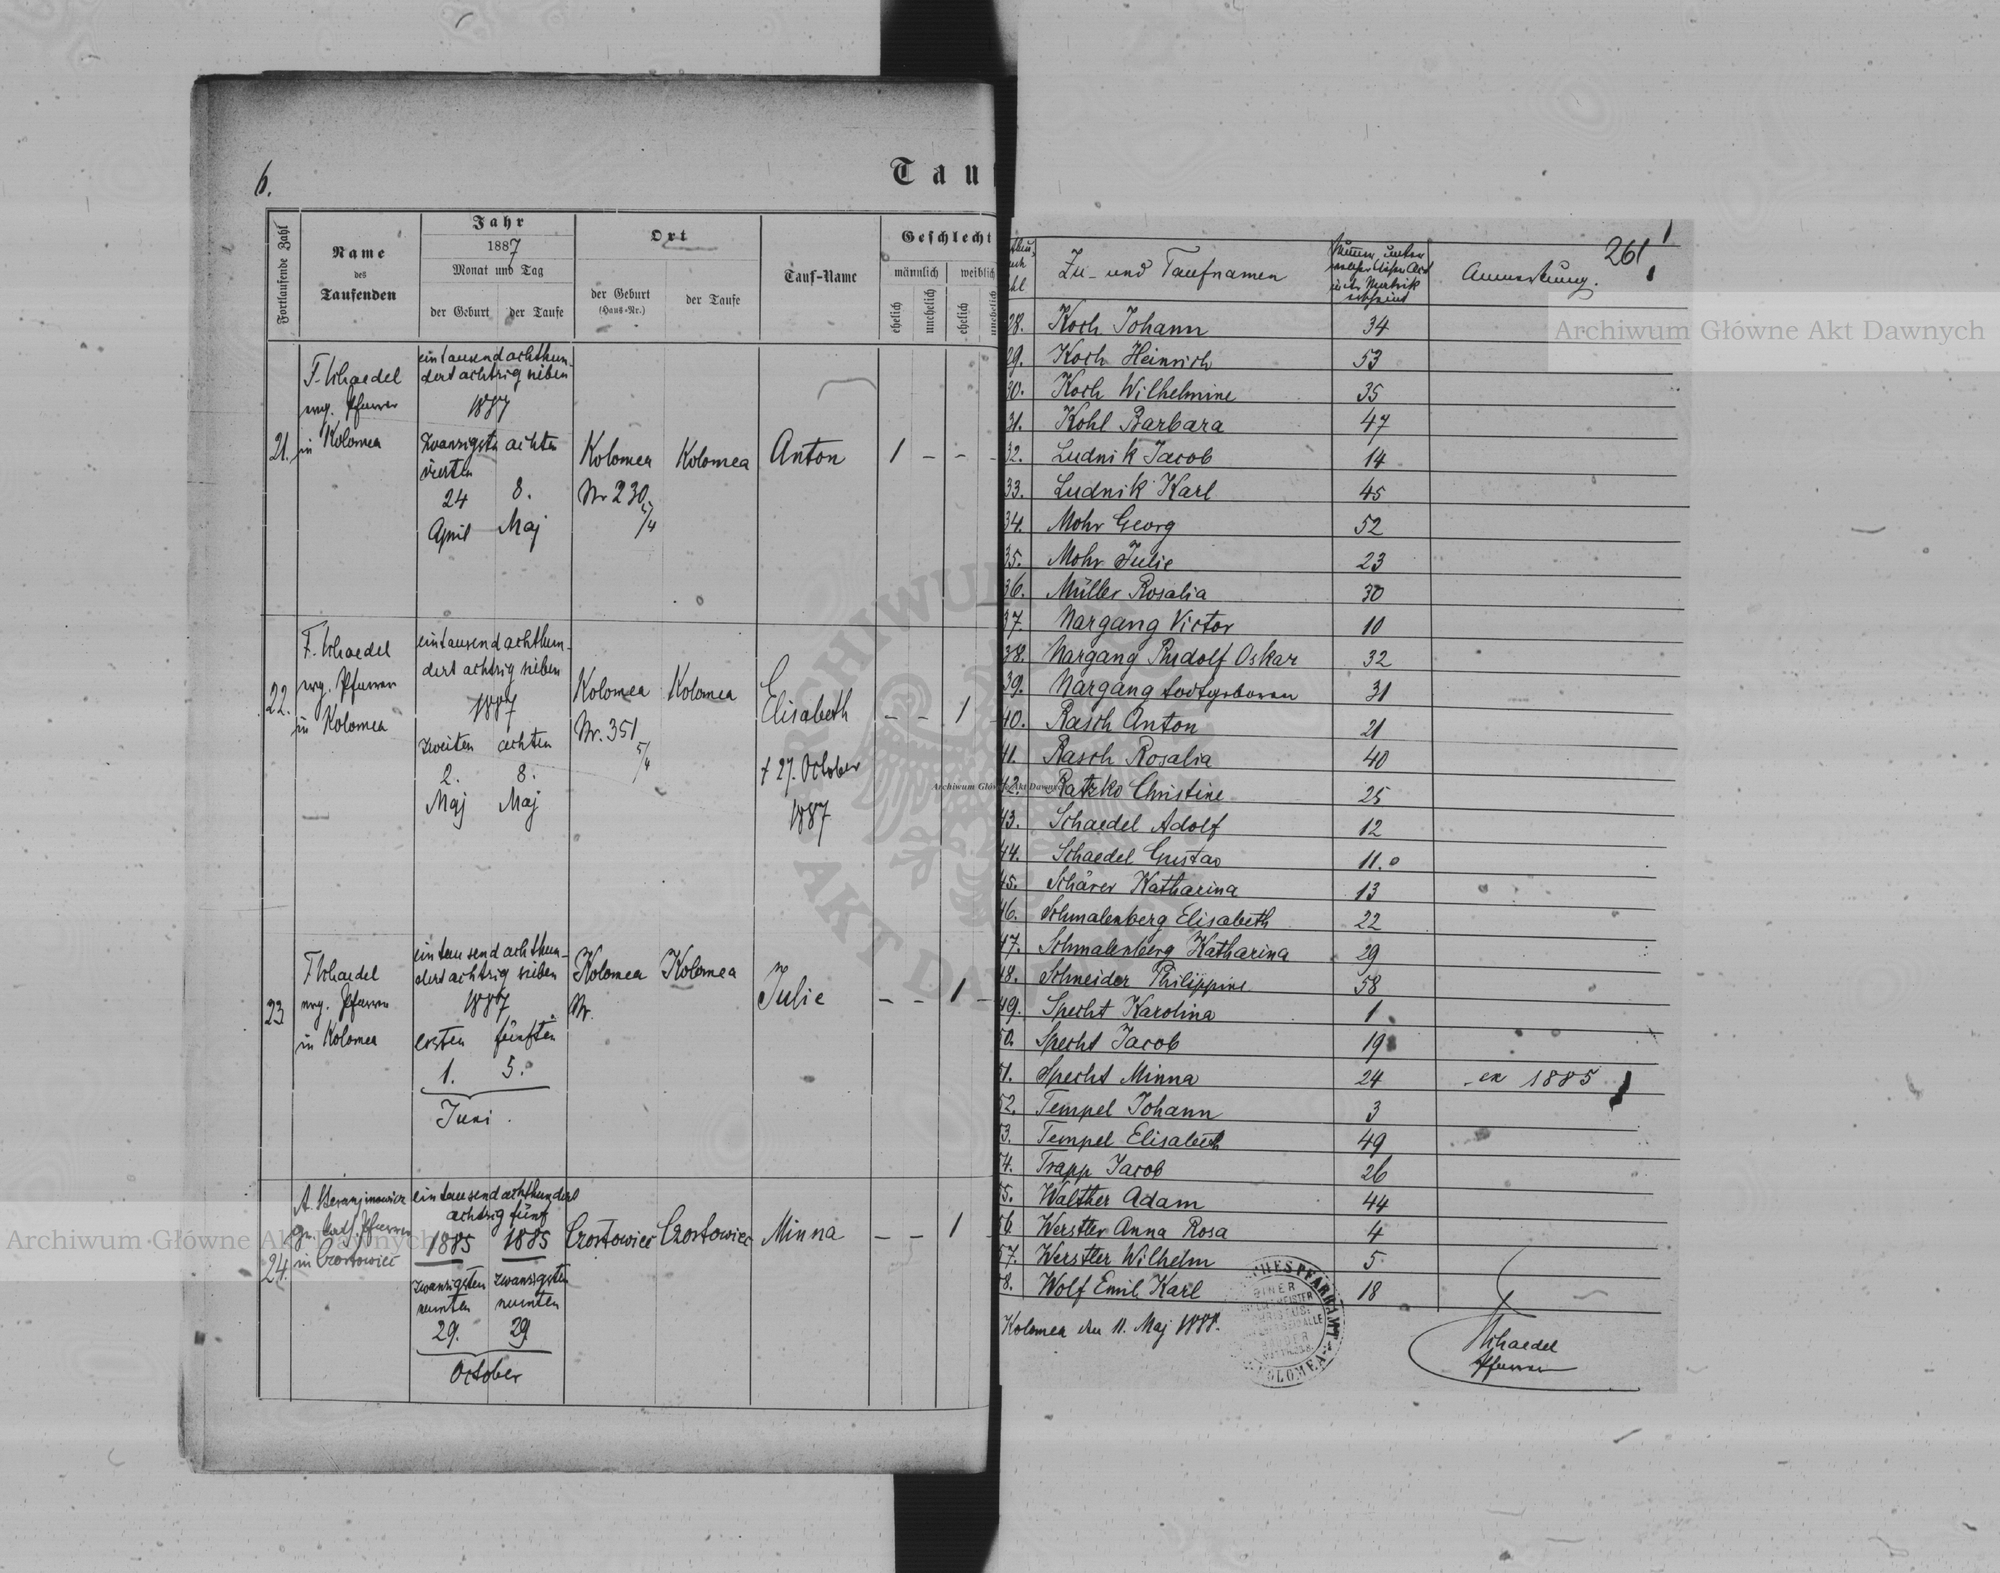 6.
Tau
Fortlaufende Zahl
Name
des
Taufenden
Jahr
1887
Monat und Tag
der Geburt
der Taufe
Ort
der Geburt
(Haus-Nr.)
der Taufe
Tauf-Name
Geschlecht
männlich
weiblich
ehelich
unehelich
ehelich
unehelich
21.
F. Schaedel
evg. Pfarrer
in Kolomea
eintausend achthun-
dert achtzig sieben
1887
zwanzigsten achten
vierten
24 8.
April Maj
Kolomea
Nr 230
5/4
Kolomea
Anton
1 - - -
22.
F. Schaedel
evg. Pfarrer
in Kolomea
eintausend achthun-
dert achtzig sieben
1887
zweiten achten
2. 8.
Maj Maj
Kolomea
Nr. 351
5/4
Kolomea
Elisabeth
† 27. October
1887
- - 1 -
23
F Schaedel
evg. Pfarrer
in Kolomea
eintausend achthun-
dert achtzig sieben
1887
ersten fünften
1. 5.
Juni.
Kolomea
Nr.
Kolomea
Julie
- - 1 -
24.
gr. kath Pfarrer
in Czortowiec
eintausend achthundert
achtzig fünf
1885 1885
zwanzigsten zwanzigsten
neunten neunten
29. 29
October
Czortowiec
Czortowiec
Minna
- - 1 -
261
Zu- und Taufnamen
Anmerkung.
28. Koch Johann 34
29. Koch Heinrich 53
30. Koch Wilhelmine 35
31. Kohl Barbara 47
32. Ludnik Jacob 14
33. Ludnik Karl 45
34. Mohr Georg 52
35. Mohr Julie 23
36. Müller Rosalia 30
37. Nargang Victor 10
38. Nargang Rudolf Oskar 32
39. Nargang todtgeboren 31
40. Rasch Anton 21
41. Rasch Rosalia 40
42. Ratzko Christine 25
43. Schaedel Adolf 12
44. Schaedel Gustav 11.
45. Schärer Katharina 13
46. Schmalenberg Elisabeth 22
47. Schmalenberg Katharina 29
48. Schneider Philippine 58
49. Specht Karolina 1
50. Specht Jacob 19
51. Specht Minna 24 ex 1885
52. Tempel Johann 3
53. Tempel Elisabeth 49
54. Trapp Jacob 26
55. Walther Adam 44
56. Werstler Anna Rosa 4
57. Werstler Wilhelm 5
58. Wolf Emil Karl 18
Kolomea den 11. Maj 1888.
Schaedel
Pfarrer
KOLOMEA
Archiwum Główne Akt Dawnych
Archiwum Główne Akt Dawnych
Archiwum Główne Akt Dawnych